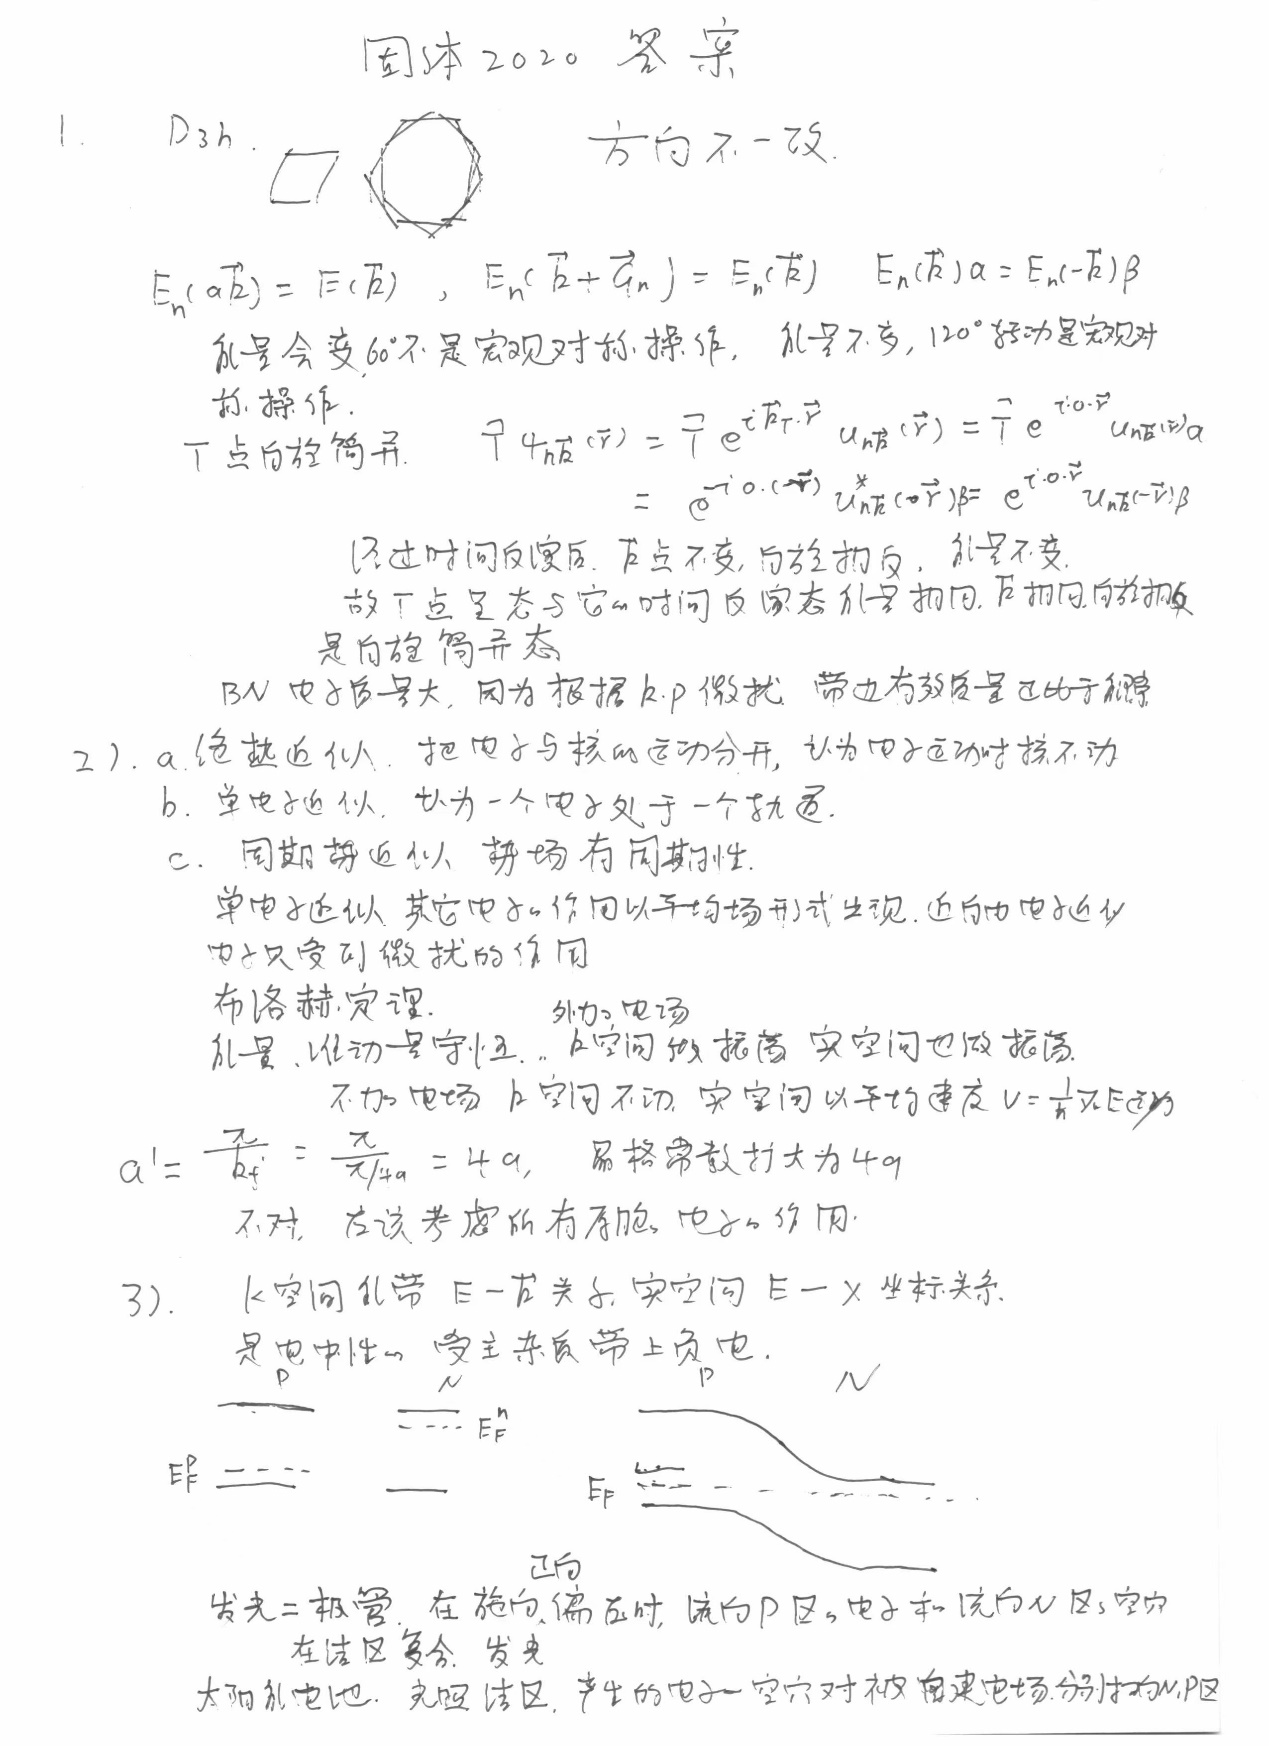 固体2020 答案
1. D3h. 方向不一致.
En(αk⃗) = E(k⃗) , En(k⃗+G⃗n) = En(k⃗) En(k⃗)α = En(-k⃗)β
能量会变,60°不是宏观对称操作, 能量不变,120°转动是宏观对
称操作.
Γ点自旋简并. T̂ψnk⃗(r⃗) = T̂ e^{ik⃗Γ·r⃗} unk⃗(r⃗) = T̂ e^{i·0·r⃗} unk⃗(r⃗)α
经过时间反演后. k⃗点不变,自旋相反, 能量不变.
故Γ点某态与它的时间反演态能量相同,k⃗相同,自旋相反
是自旋简并态
BN 电子质量大, 因为根据k·p微扰 带边有效质量正比于能隙
2). a.绝热近似. 把电子与核的运动分开, 认为电子运动时核不动
b. 单电子近似, 认为一个电子处于一个轨道.
c. 周期势近似 势场有周期性.
单电子近似 其它电子的作用以平均场形式出现. 近自由电子近似
电子只受到微扰的作用
布洛赫定理.
外加电场
能量、准动量守恒. k空间做振荡 实空间也做振荡.
不加电场 k空间不动, 实空间以平均速度 V=1/ħ ∇kE运动
a' = π/kf = π/(π/4a) = 4a, 晶格常数扩大为4a
不对, 应该考虑所有原胞的电子的作用.
3). k空间能带 E-k⃗关系, 实空间 E-X 坐标关系.
是电中性的 受主杂质带上负电.
P N P N
EF^n
EF^p EF
正向
发光二极管. 在施加偏压时, 流向P区的电子和流向N区的空穴
在结区复合. 发光
太阳能电池. 光照结区, 产生的电子-空穴对被自建电场分别拉向N,P区